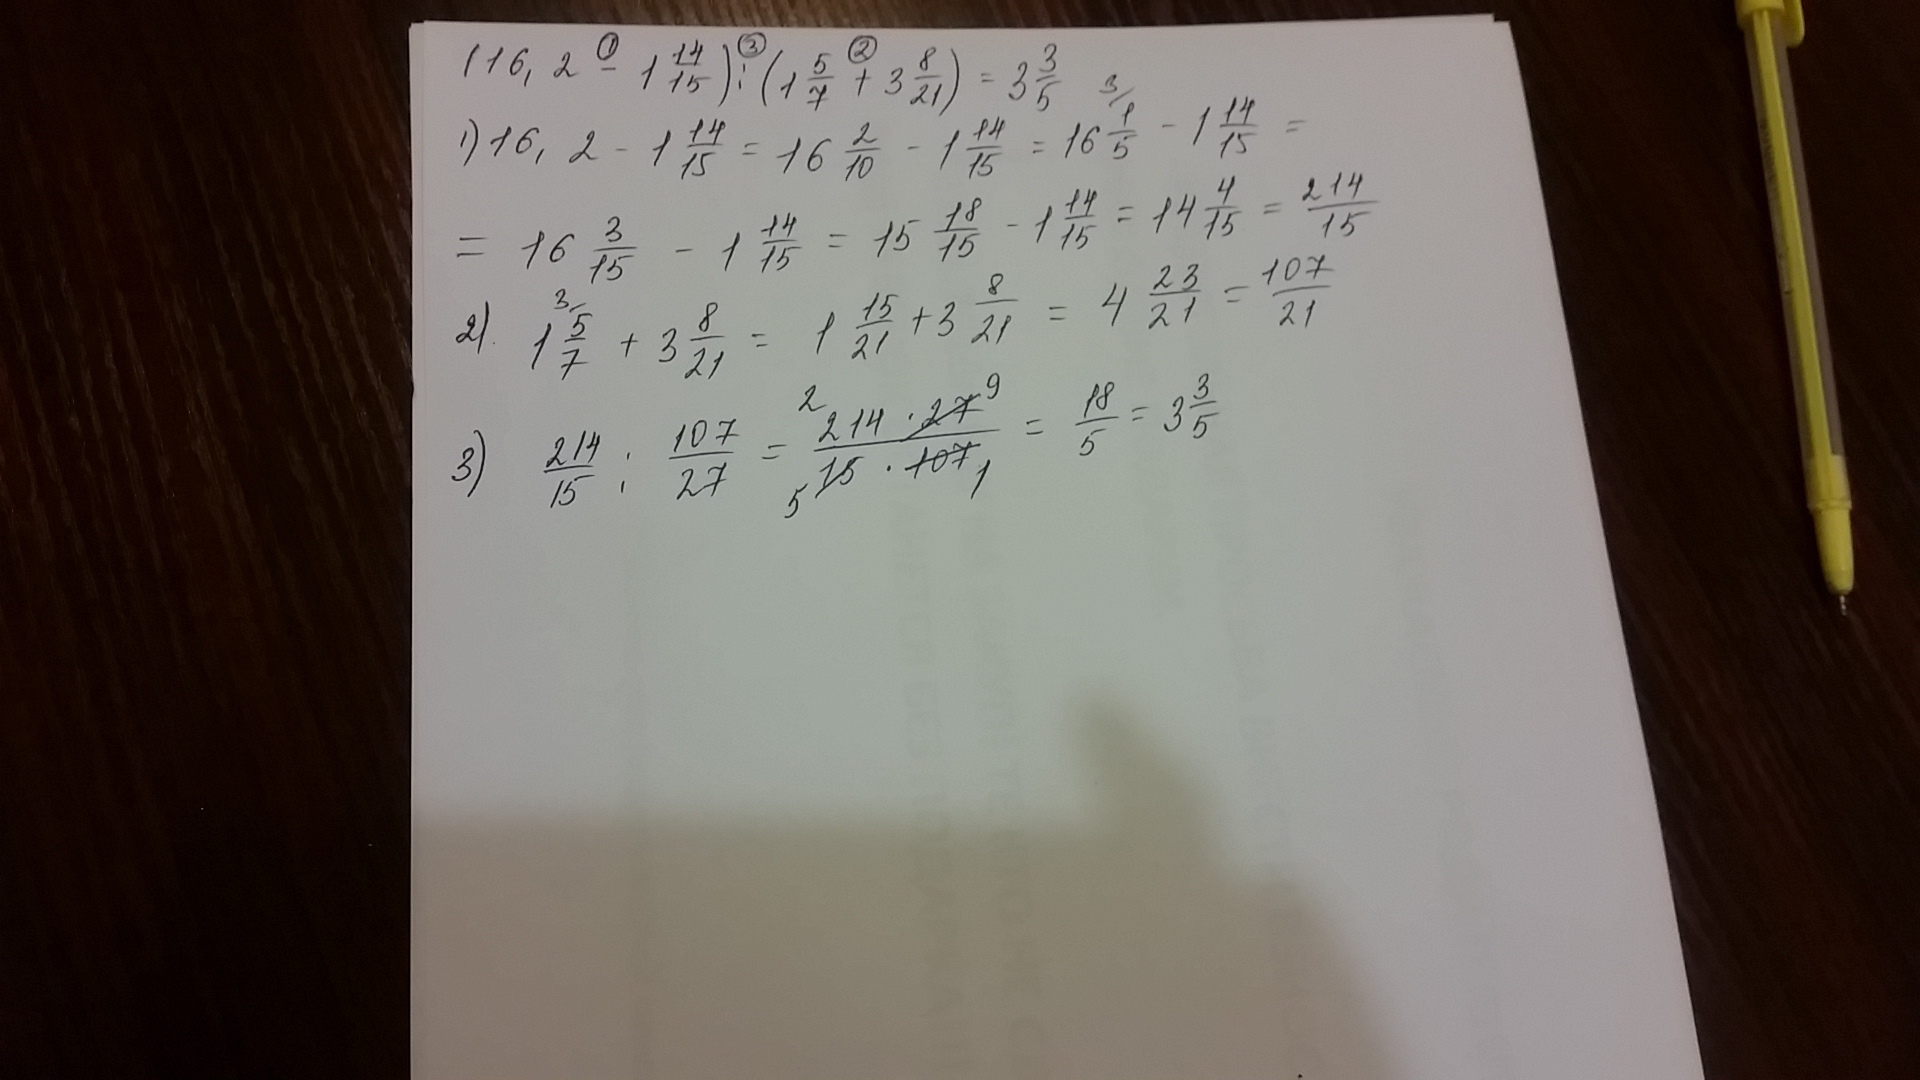 (16,2 ① - 1 14/15) ③ : (1 5/7 ② + 3 8/21) = 3 3/5
1) 16,2 - 1 14/15 = 16 2/10 - 1 14/15 = 16 3/ 1/5 - 1 14/15 =
= 16 3/15 - 1 14/15 = 15 18/15 - 1 14/15 = 14 4/15 = 214/15
2) 1 3/ 5/7 + 3 8/21 = 1 15/21 + 3 8/21 = 4 23/21 = 107/21
3) 214/15 : 107/27 = 2 214 · 27 9 / 5 15 · 107 1 = 18/5 = 3 3/5